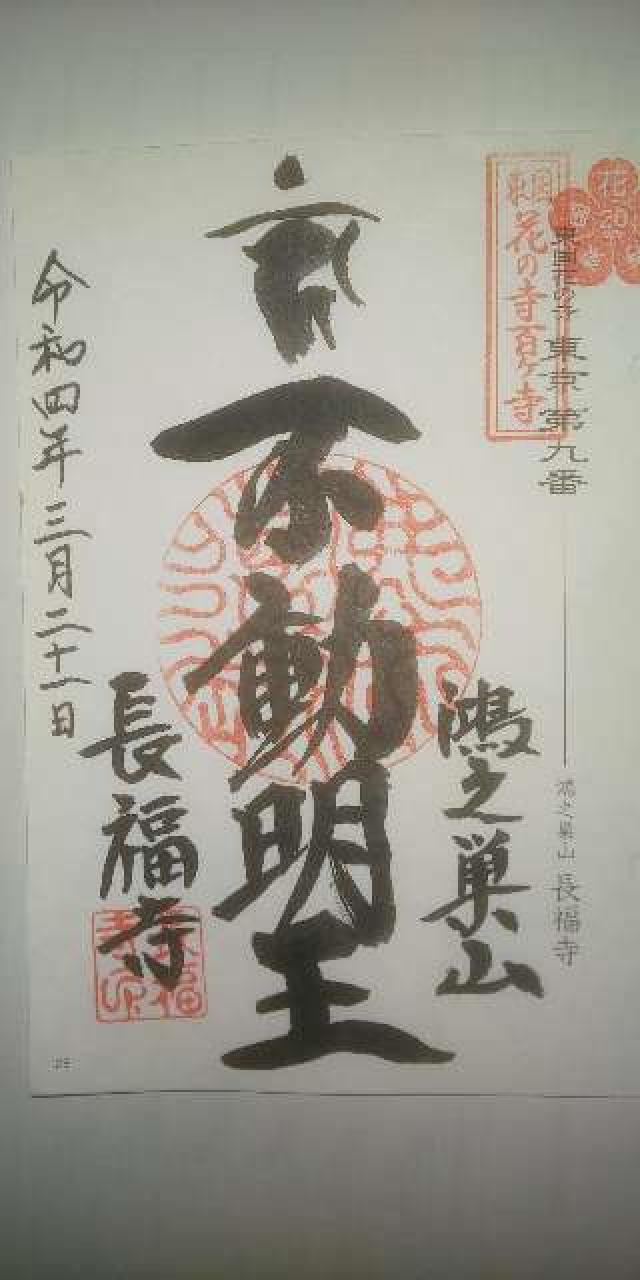 東国花の寺 東京第九番
鴻之巣山 長福寺
東国花の寺百ヶ寺
鴻之巣山
不動明王
長福寺
令和四年三月二十一日